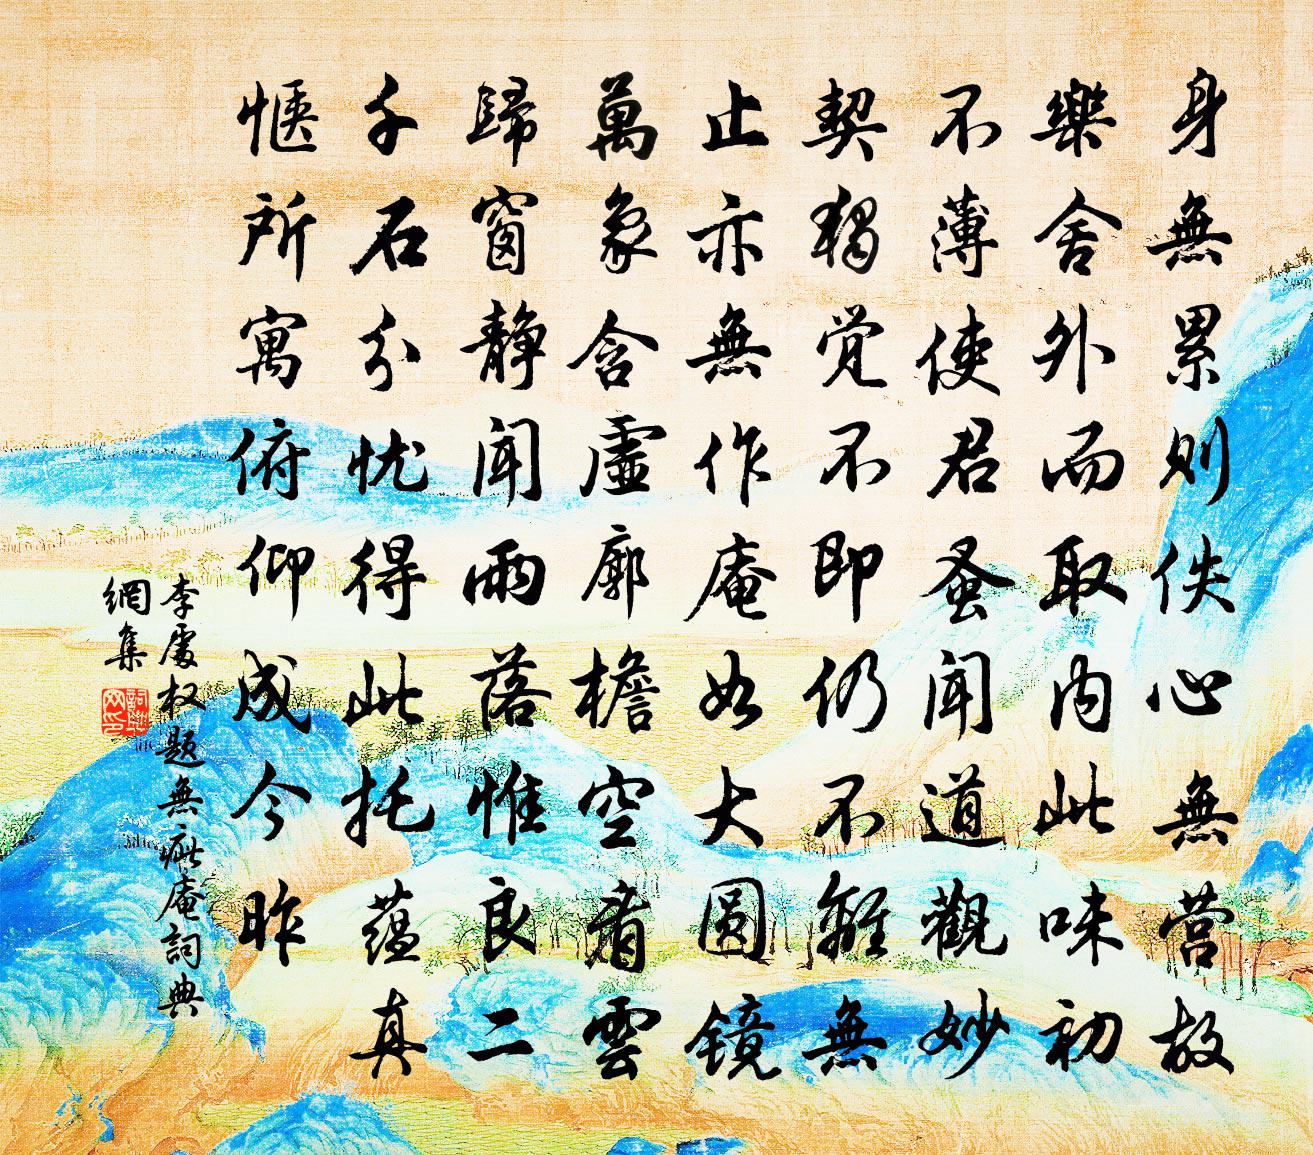 身無累則佚心無營故
樂舍外而取内此味初
不薄使君蚤聞道觀妙
契獨觉不即仍不離無
止亦無作庵如大圓镜
萬象含虛廓檐空看雲
歸窗静聞雨落惟良二
千石分忧得此托蕴真
愜所寓俯仰成今昨
李處权題無疵庵詞典
網集